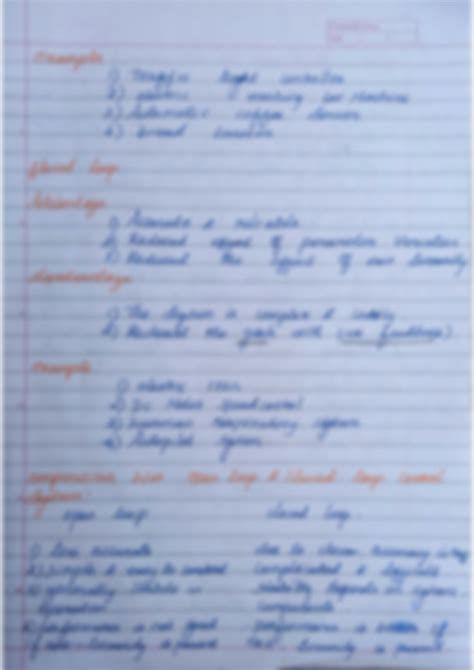 Example
1) Traffic light controller
2) electric washing
3) Automatic coffee server
4) bread toaster
Closed loop
Advantage
1) Accurate & reliable
2) Reduced effect of parameter variation
3) Reduced the effect of non linearity
Disadvantage
1) The system is complex & costly
2) Reduced the gain with (-ve feedback)
Example
2) DC Motor speed control
3) human respiratory system
4) Autopilot system
comparision b/w open loop & closed loop control
system:
open loop closed loop
1) less accurate due to accuracy is
2) simple & easy to complicated &
3) generally stable in stability depends on system
operation components
4) performance is not good performance is
if non-linearity is present linearity is present